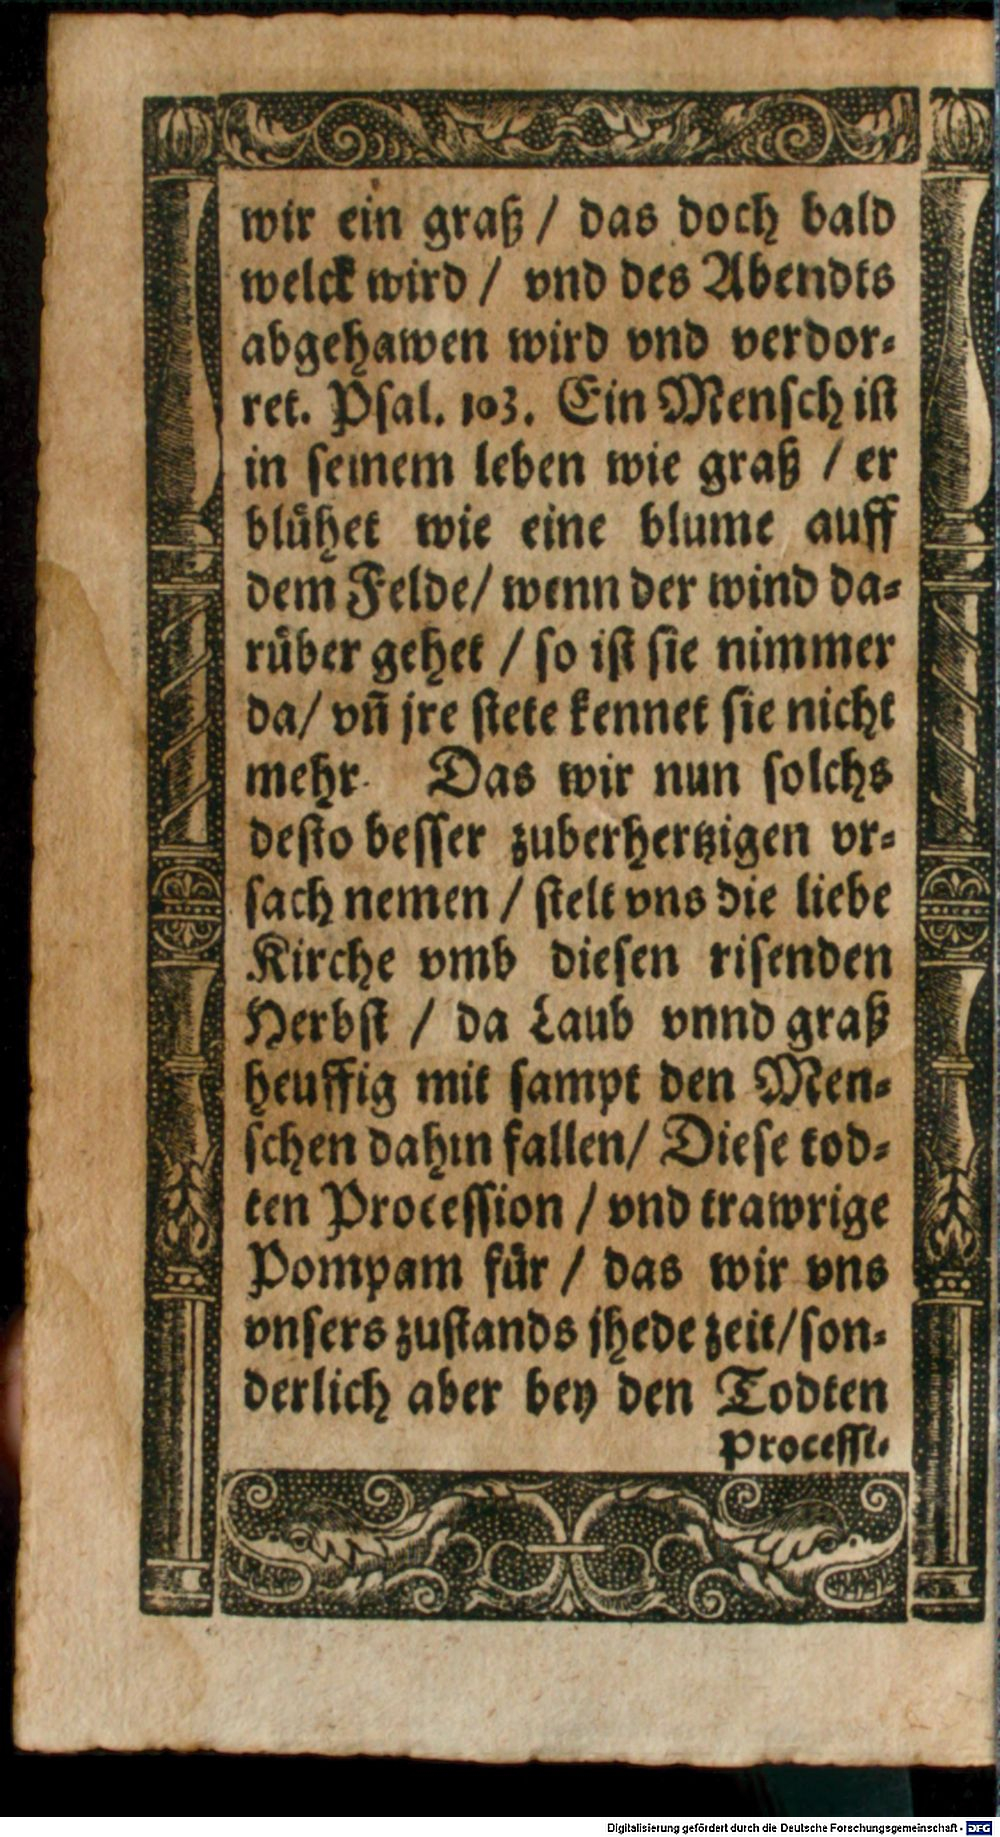 wir ein graß / das doch bald
welck wird / vnd des Abendts
abgehawen wird vnd verdor⸗
ret. Psal. 103. Ein Mensch ist
in seinem leben wie graß / er
blühet wie eine blume auff
dem Felde/ wenn der wind da⸗
rüber gehet / so ist sie nimmer
da/ vñ jre stete kennet sie nicht
mehr. Das wir nun solchs
desto besser zuberhertzigen vr⸗
sach nemen / stelt vns die liebe
Kirche vmb diesen risenden
Herbst / da Laub vnnd graß
heuffig mit sampt den Men⸗
schen dahin fallen/ Diese tod⸗
ten Procession / vnd trawrige
Pompam für / das wir vns
vnsers zustands jhede zeit/son⸗
derlich aber bey den Todten
Processi⸗
Digitalisierung gefördert durch die Deutsche Forschungsgemeinschaft - DFG